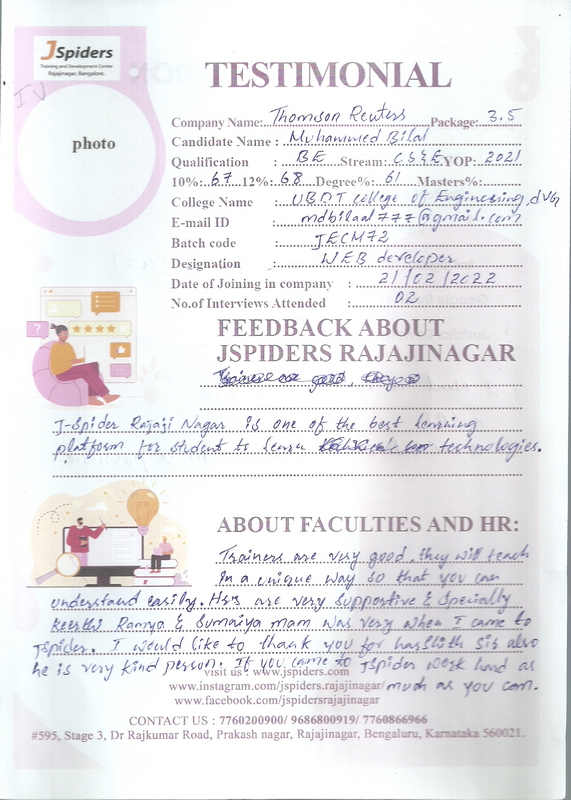 JSpiders
Training and Development Center
Rajajinagar, Bangalore.
TESTIMONIAL
IV
photo
Company Name: Thomson Reuters Package: 3.5
Candidate Name : Muhammed Bilal
Qualification : BE Stream: CS&E YOP: 2021
10%: 67 12%: 68 Degree%: 61 Masters%:
College Name : UBDT College of Engineering, dvg
E-mail ID : mdbilaal777@gmail.com
Batch code : JECM72
Designation : WEB developer
Date of Joining in company : 21/02/2022
No.of Interviews Attended : 02
FEEDBACK ABOUT
JSPIDERS RAJAJINAGAR
J-Spider Rajaji Nagar is one of the best learning
platform for student to learn technologies.
ABOUT FACULTIES AND HR:
Trainers are very good. they will teach
in a unique way so that you can
understand easily. Hr's are very supportive & specially
Keerthi Ramya & Sumaiya mam was very when I came to
Jspider. I would like to thank you for harshith Sir also
he is very kind person. If you came to Jspider work hard as
much as you can.
visit us : www.jspiders.com
www.instagram.com/jspiders.rajajinagar/
www.facebook.com/jspidersrajajinagar
CONTACT US : 7760200900/ 9686800919/ 7760866966
#595, Stage 3, Dr Rajkumar Road, Prakash nagar, Rajajinagar, Bengaluru, Karnataka 560021.